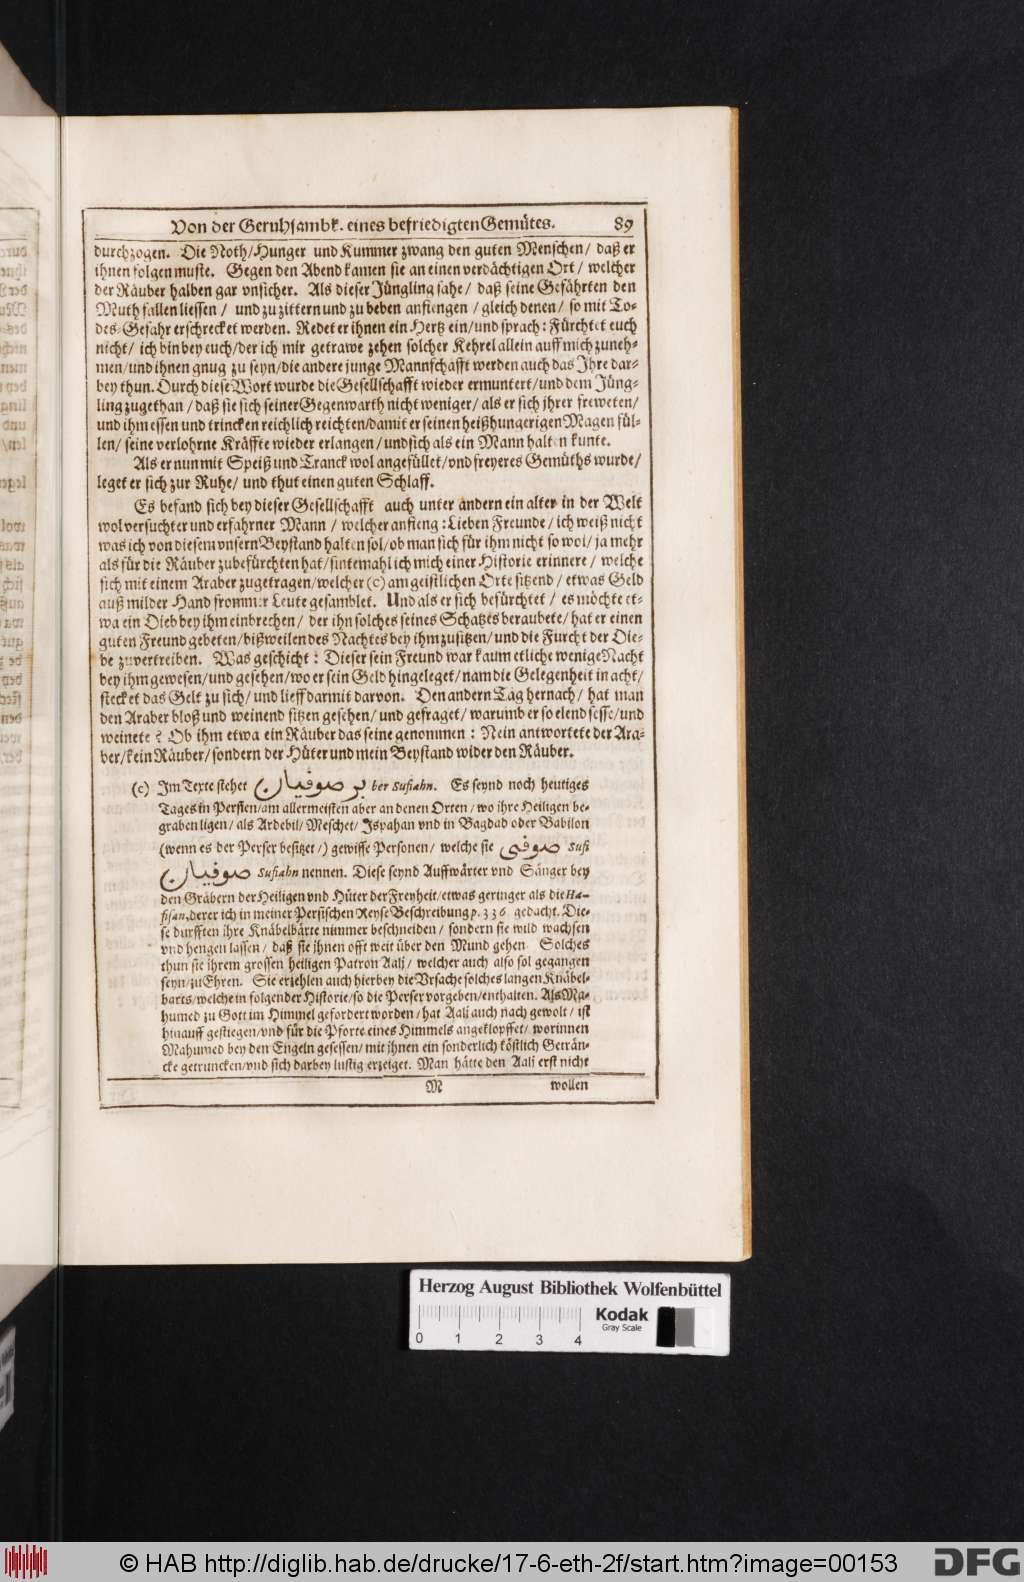 Von der Geruhsambk. eines befriedigten Gemütes. 89
durchzogen. Die Noth/Hunger und Kummer zwang den guten Menschen/ daß er
ihnen folgen muste. Gegen den Abend kamen sie an einen verdächtigen Ort/ welcher
der Räuber halben gar vnsicher. Als dieser Jüngling sahe/ daß seine Gefährten den
Muth fallen liessen/ und zu zittern und zu beben anfiengen/ gleich denen/ so mit To-
des-Gefahr erschrecket werden. Redet er ihnen ein Hertz ein/und sprach: Fürchtet euch
nicht/ ich bin bey euch/der ich mir getrawe zehen solcher Kehrel allein auff mich zuneh-
men/und ihnen gnug zu seyn/die andere junge Mannschafft werden auch das Ihre dar-
bey thun. Durch diese Wort wurde die Gesellschafft wieder ermuntert/und dem Jüng-
ling zugethan/ daß sie sich seiner Gegenwarth nicht weniger/ als er sich jhrer freweten/
und ihm essen und trincken reichlich reichten/damit er seinen heißhungerigen Magen fül-
len/ seine verlohrne Kräffte wieder erlangen/ und sich als ein Mann halten kunte.
Als er nun mit Speiß und Tranck wol angefüllet/vnd freyeres Gemüths wurde/
leget er sich zur Ruhe/ und thut einen guten Schlaff.
Es befand sich bey dieser Gesellschafft auch unter andern ein alter in der Welt
wol versuchter und erfahrner Mann/ welcher anfieng: Lieben Freunde/ ich weiß nicht
was ich von diesem vnsern Beystand halten sol/ob man sich für ihm nicht so wol/ ja mehr
als für die Räuber zubefürchten hat/sintemahl ich mich einer Historie erinnere/ welche
sich mit einem Araber zugetragen/welcher (c) am geistlichen Orte sitzend/ etwas Geld
auß milder Hand frommer Leute gesamblet. Und als er sich befürchtet/ es möchte et-
wa ein Dieb bey ihm einbrechen/ der ihn solches seines Schatzes beraubete/ hat er einen
guten Freund gebeten/ bißweilen des Nachtes bey ihm zusitzen/ und die Furcht der Die-
be zuvertreiben. Was geschicht: Dieser sein Freund war kaum etliche wenige Nacht
bey ihm gewesen/und gesehen/wo er sein Geld hingeleget/nam die Gelegenheit in acht/
stecket das Gelt zu sich/ und lieff darmit darvon. Den andern Tag hernach/ hat man
den Araber bloß und weinend sitzen gesehen/ und gefraget/ warumb er so elend sesse/und
weinete? Ob ihm etwa ein Räuber das seine genommen: Nein antwortete der Ara-
ber/kein Räuber/sondern der Hüter und mein Beystand wider den Räuber.
(c) Im Texte stehet بر صوفيان ber Sufiahn. Es seynd noch heutiges
Tages in Persien/am allermeisten aber an denen Orten/ wo ihre Heiligen be-
graben ligen/ als Ardebil/ Meschet/ Ispahan vnd in Bagdad oder Babilon
(wenn es der Perser besitzet/) gewisse Personen/ welche sie صوفي Sufi
صوفيان Sufiahn nennen. Diese seynd Auffwärter vnd Sänger bey
den Gräbern der Heiligen vnd Hüter der Freyheit/etwas geringer als die Ha-
fisan, derer ich in meiner Persischen Reyse Beschreibung p. 336 gedacht. Die-
se durfften ihre Knäbelbärte nimmer beschneiden/ sondern sie wild wachsen
vnd hengen lassen/ daß sie ihnen offt weit über den Mund gehen Solches
thun sie ihrem grossen heiligen Patron Aali/ welcher auch also sol gegangen
seyn/zu Ehren. Sie erzehlen auch hierbey die Vrsache solches langen Knäbel-
barts/welche in folgender Historie/so die Perser vorgeben/enthalten. Als Ma-
humed zu Gott im Himmel gefordert worden/ hat Aali auch nach gewolt/ ist
hinauff gestiegen/vnd für die Pforte eines Himmels angeklopffet/ worinnen
Mahumed bey den Engeln gesessen/ mit jhnen ein sonderlich köstlich Geträn-
cke getruncken/vnd sich darbey lustig erzeiget. Man hätte den Aali erst nicht
M wollen
Herzog August Bibliothek Wolfenbüttel
Kodak
Gray Scale
0 1 2 3 4
© HAB http://diglib.hab.de/drucke/17-6-eth-2f/start.htm?image=00153
DFG